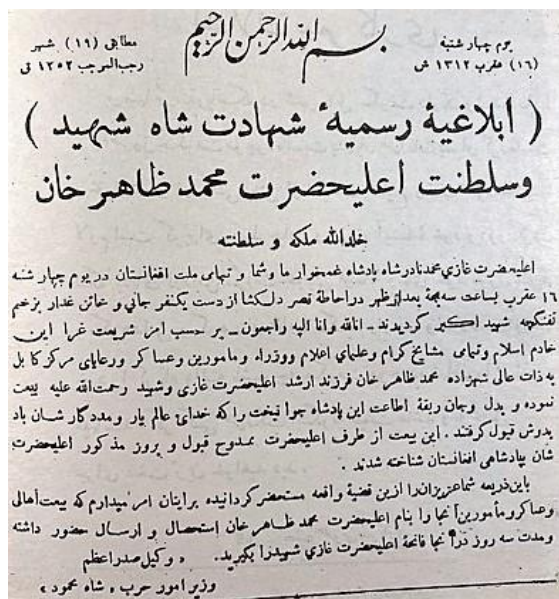 بسم الله الرحمن الرحيم
یوم چهار شنبه
(۱۶) عقرب ۱۳۱۲ ش
مطابق (۱۹) شهر
رجب المرجب ۱۳۵۲ ق
( ابلاغیهٔ رسمیهٔ شهادت شاه شهید )
وسلطنت اعلیحضرت محمد ظاهر خان
خلدالله ملکه و سلطنته
اعلیحضرت غازی محمد نادرشاه پادشاه غمخوار ما وشما و تمامی ملت افغانستان در یوم چهار شنبه
۱۶ عقرب بساعت سه بجهٔ بعدازظهر دراحاطهٔ قصر دلکشا از دست یکنفر جانی و خائن غدار بزخم
تفنگچه شهید اکبر گردیدند ـ اناللّٰه وانا الیه راجعون ـ بر حسب امر شریعت غرا این
خادم اسلام وتمامی مشایخ کرام وعلمای اعلام ووزراء ومامورین وعسا کر ورعایای مرکز کا بل
به ذات عالی شهزاده محمد ظاهر خان فرزند ارشد اعلیحضرت غازی وشهید رحمت‌الله علیه بیعت
نموده و بدل وجان ربقهٔ اطاعت این پادشاه جوا نبخت را که خدای عالم یار ومددگار شان باد
بدرش قبول گرفتند . این بیعت از طرف اعلیحضرت ممدوح قبول و بروز مذکور اعلیحضرت
شان بپادشاهی افغانستان شناخته شدند .
باین‌ذریعه شما عزیزان را ازین قضیهٔ واقعه مستحضر گردانیده برایتان امر میدارم که بیعت اهالی
وعساکر و مأمورین آنجا را بنام اعلیحضرت محمد ظاهر خان استحصال و ارسال حضور داشته
ومدت سه روز در آنجا فاتحهٔ اعلیحضرت غازی شهیدرا بگیرید. « وکیل صدراعظم
وزیر امور حرب ، شاه محمود »